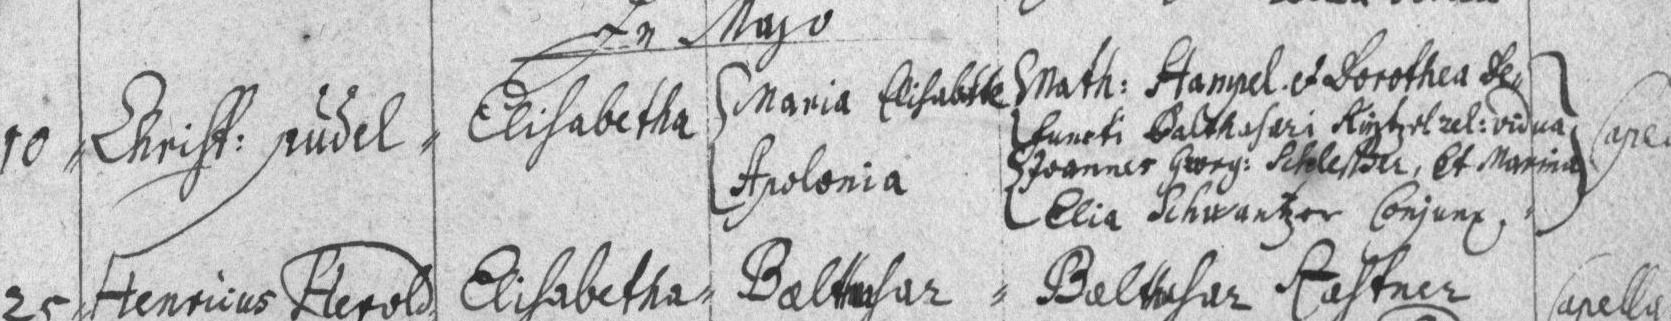 In Majo
10 Christ: rudel Elisabetha Maria Elisabethe Math: Hampel. et Dorothea de=
functi Balthasari rel: vidua
Apolonia Joannes Georg: Et Marina
Elia Schwantzer Conjunx.
25 Henricus Herold Elisabetha Balthasar Balthasar Kastner Capella